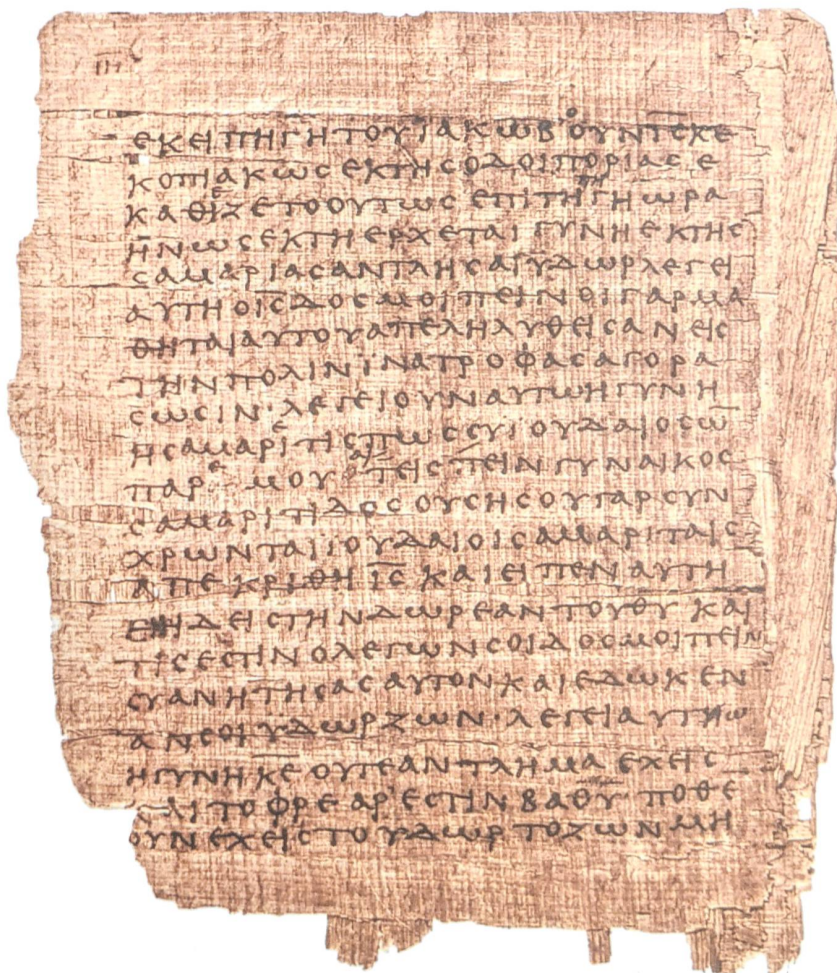 ΙΗ
ΕΚΕΙ ΠΗΓΗ ΤΟΥ ΪΑΚΩΒ Ο ΟΥΝ Ι̅Σ̅ ΚΕ
ΚΟΠΙΑΚΩϹ ΕΚ ΤΗϹ ΟΔΟΙΠΟΡΙΑϹ Ε
ΚΑΘΕΖΕΤΟ ΟΥΤΩϹ ΕΠΙ ΤΗ ΠΗΓΗ ΩΡΑ
ΗΝ ΩϹ ΕΚΤΗ ΕΡΧΕΤΑΙ ΓΥΝΗ ΕΚ ΤΗϹ
ϹΑΜΑΡΙΑϹ ΑΝΤΛΗϹΑΙ ΥΔΩΡ ΛΕΓΕΙ
ΑΥΤΗ Ο Ι̅Ϲ̅ ΔΟϹ ΜΟΙ ΠΕΙΝ ΟΙ ΓΑΡ ΜΑ
ΘΗΤΑΙ ΑΥΤΟΥ ΑΠΕΛΗΛΥΘΕΙϹΑΝ ΕΙϹ
ΤΗΝ ΠΟΛΙΝ ΪΝΑ ΤΡΟΦΑϹ ΑΓΟΡΑ
ϹΩϹΙΝ· ΛΕΓΕΙ ΟΥΝ ΑΥΤΩ Η ΓΥΝΗ
Η ϹΑΜΑΡΕΙΤΙϹ ΠΩϹ ϹΥ ΙΟΥΔΑΙΟϹ Ω̅
ΠΑΡ ΕΜΟΥ ΑΙΤΕΙϹ ΠΕΙΝ ΓΥΝΑΙΚΟϹ
ϹΑΜΑΡΙΤΙΔΟϹ ΟΥϹΗϹ ΟΥ ΓΑΡ ϹΥΝ
ΧΡΩΝΤΑΙ ΙΟΥΔΑΙΟΙ ϹΑΜΑΡΙΤΑΙϹ
ΑΠΕΚΡΙΘΗ Ι̅Ϲ̅ ΚΑΙ ΕΙΠΕΝ ΑΥΤΗ
ΕΙ ΗΔΕΙϹ ΤΗΝ ΔΩΡΕΑΝ ΤΟΥ Θ̅Υ̅ ΚΑΙ
ΤΙϹ ΕϹΤΙΝ Ο ΛΕΓΩΝ ϹΟΙ ΔΟϹ ΜΟΙ ΠΕΙΝ
ϹΥ ΑΝ ΗΤΗϹΑϹ ΑΥΤΟΝ ΚΑΙ ΕΔΩΚΕΝ
ΑΝ ϹΟΙ ΥΔΩΡ ΖΩΝ· ΛΕΓΕΙ ΑΥΤΩ
Η ΓΥΝΗ Κ̅Ε̅ ΟΥΤΕ ΑΝΤΛΗΜΑ ΕΧΕΙϹ
ΚΑΙ ΤΟ ΦΡΕΑΡ ΕϹΤΙΝ ΒΑΘΥ ΠΟΘΕ
ΟΥΝ ΕΧΕΙϹ ΤΟ ΥΔΩΡ ΤΟ ΖΩΝ ΜΗ